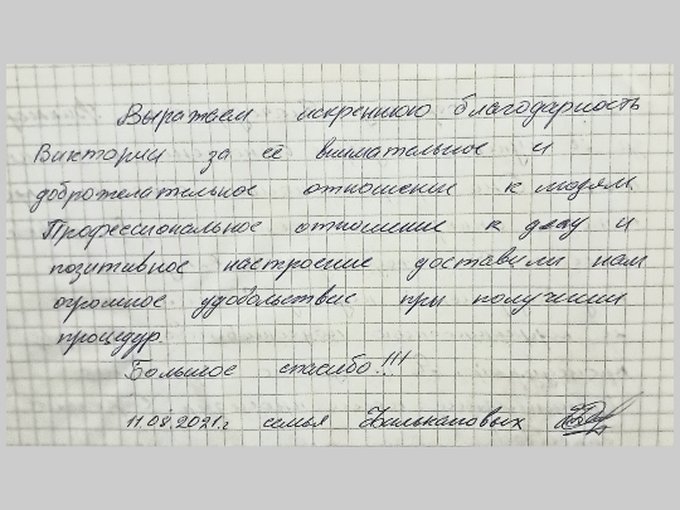 Выражаем искреннюю благодарность
Виктории за её внимательное и
доброжелательное отношение к людям.
Профессиональное отношение к делу и
позитивное настроение доставили нам
огромное удовольствие при получении
процедур.
Большое спасибо!!!
11.08.2021г семья